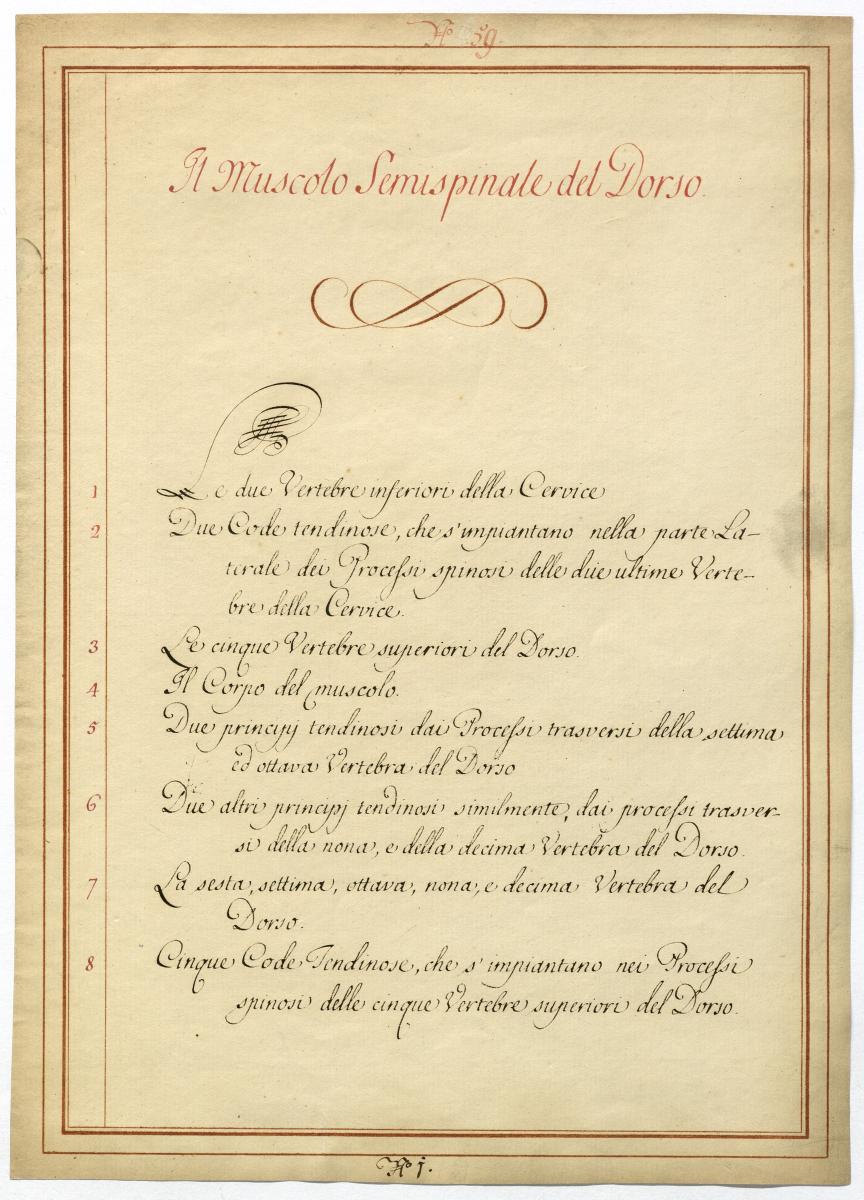 No. 59.
Il Muscolo Semispinale del Dorso.
1 Le due Vertebre inferiori della Cervice
2 Due Code tendinose, che s'impiantano nella parte La-
terale dei Processi spinosi delle due ultime Verte-
bre della Cervice.
3 Le cinque Vertebre superiori del Dorso.
4 Il Corpo del muscolo.
5 Due principj tendinosi dai Processi trasversi della settima
ed ottava Vertebra del Dorso
6 Due altri principj tendinosi similmente, dai processi trasver-
si della nona, e della decima Vertebra del Dorso.
7 La sesta, settima, ottava, nona, e decima Vertebra del
Dorso.
8 Cinque Code Tendinose, che s'impiantano nei Processi
spinosi delle cinque Vertebre superiori del Dorso.
No. 1.